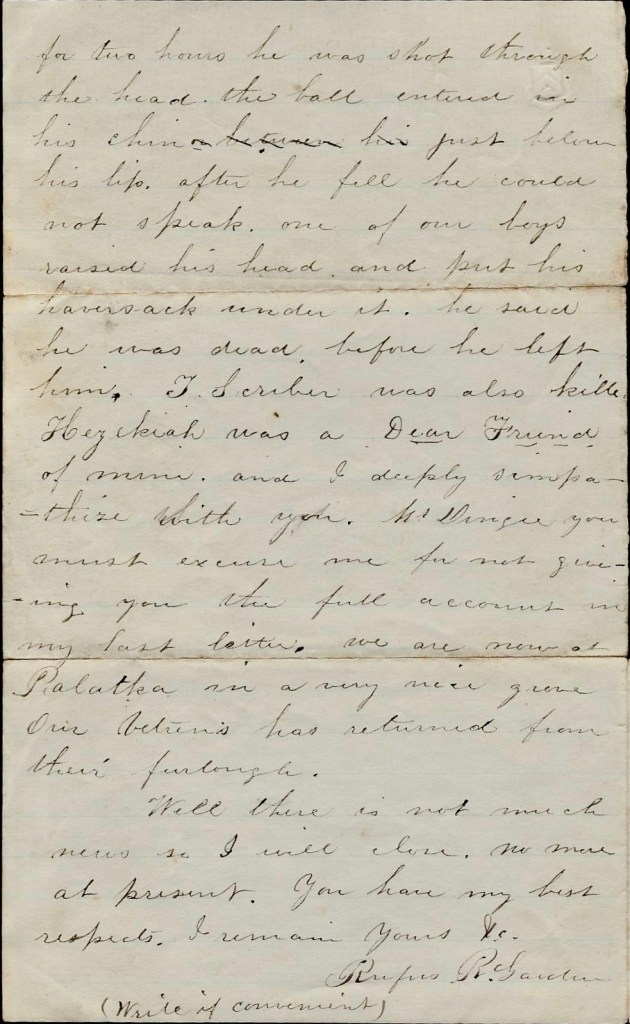 for two hours he was shot through
the head. the ball entered in
his chin or between his just below
his lip. after he fell he could
not speak. one of our boys
raised his head. and put his
haversack under it. he said
he was dead, before he left
him. T. Scriber was also kille
Hezekiah was a Dear Friend
of mine. and I deeply simpa-
-thize with you. Mr Dingee you
must excuse me for not give-
-ing you the full account in
my last letter. we are now at
Palatka in a very nice grove
Our Vetrens has returned from
their furlough.
Well there is not much
news so I will close. no more
at present. You have my best
respects. I remain Yours &c.
Rufus
(Write if convenient)